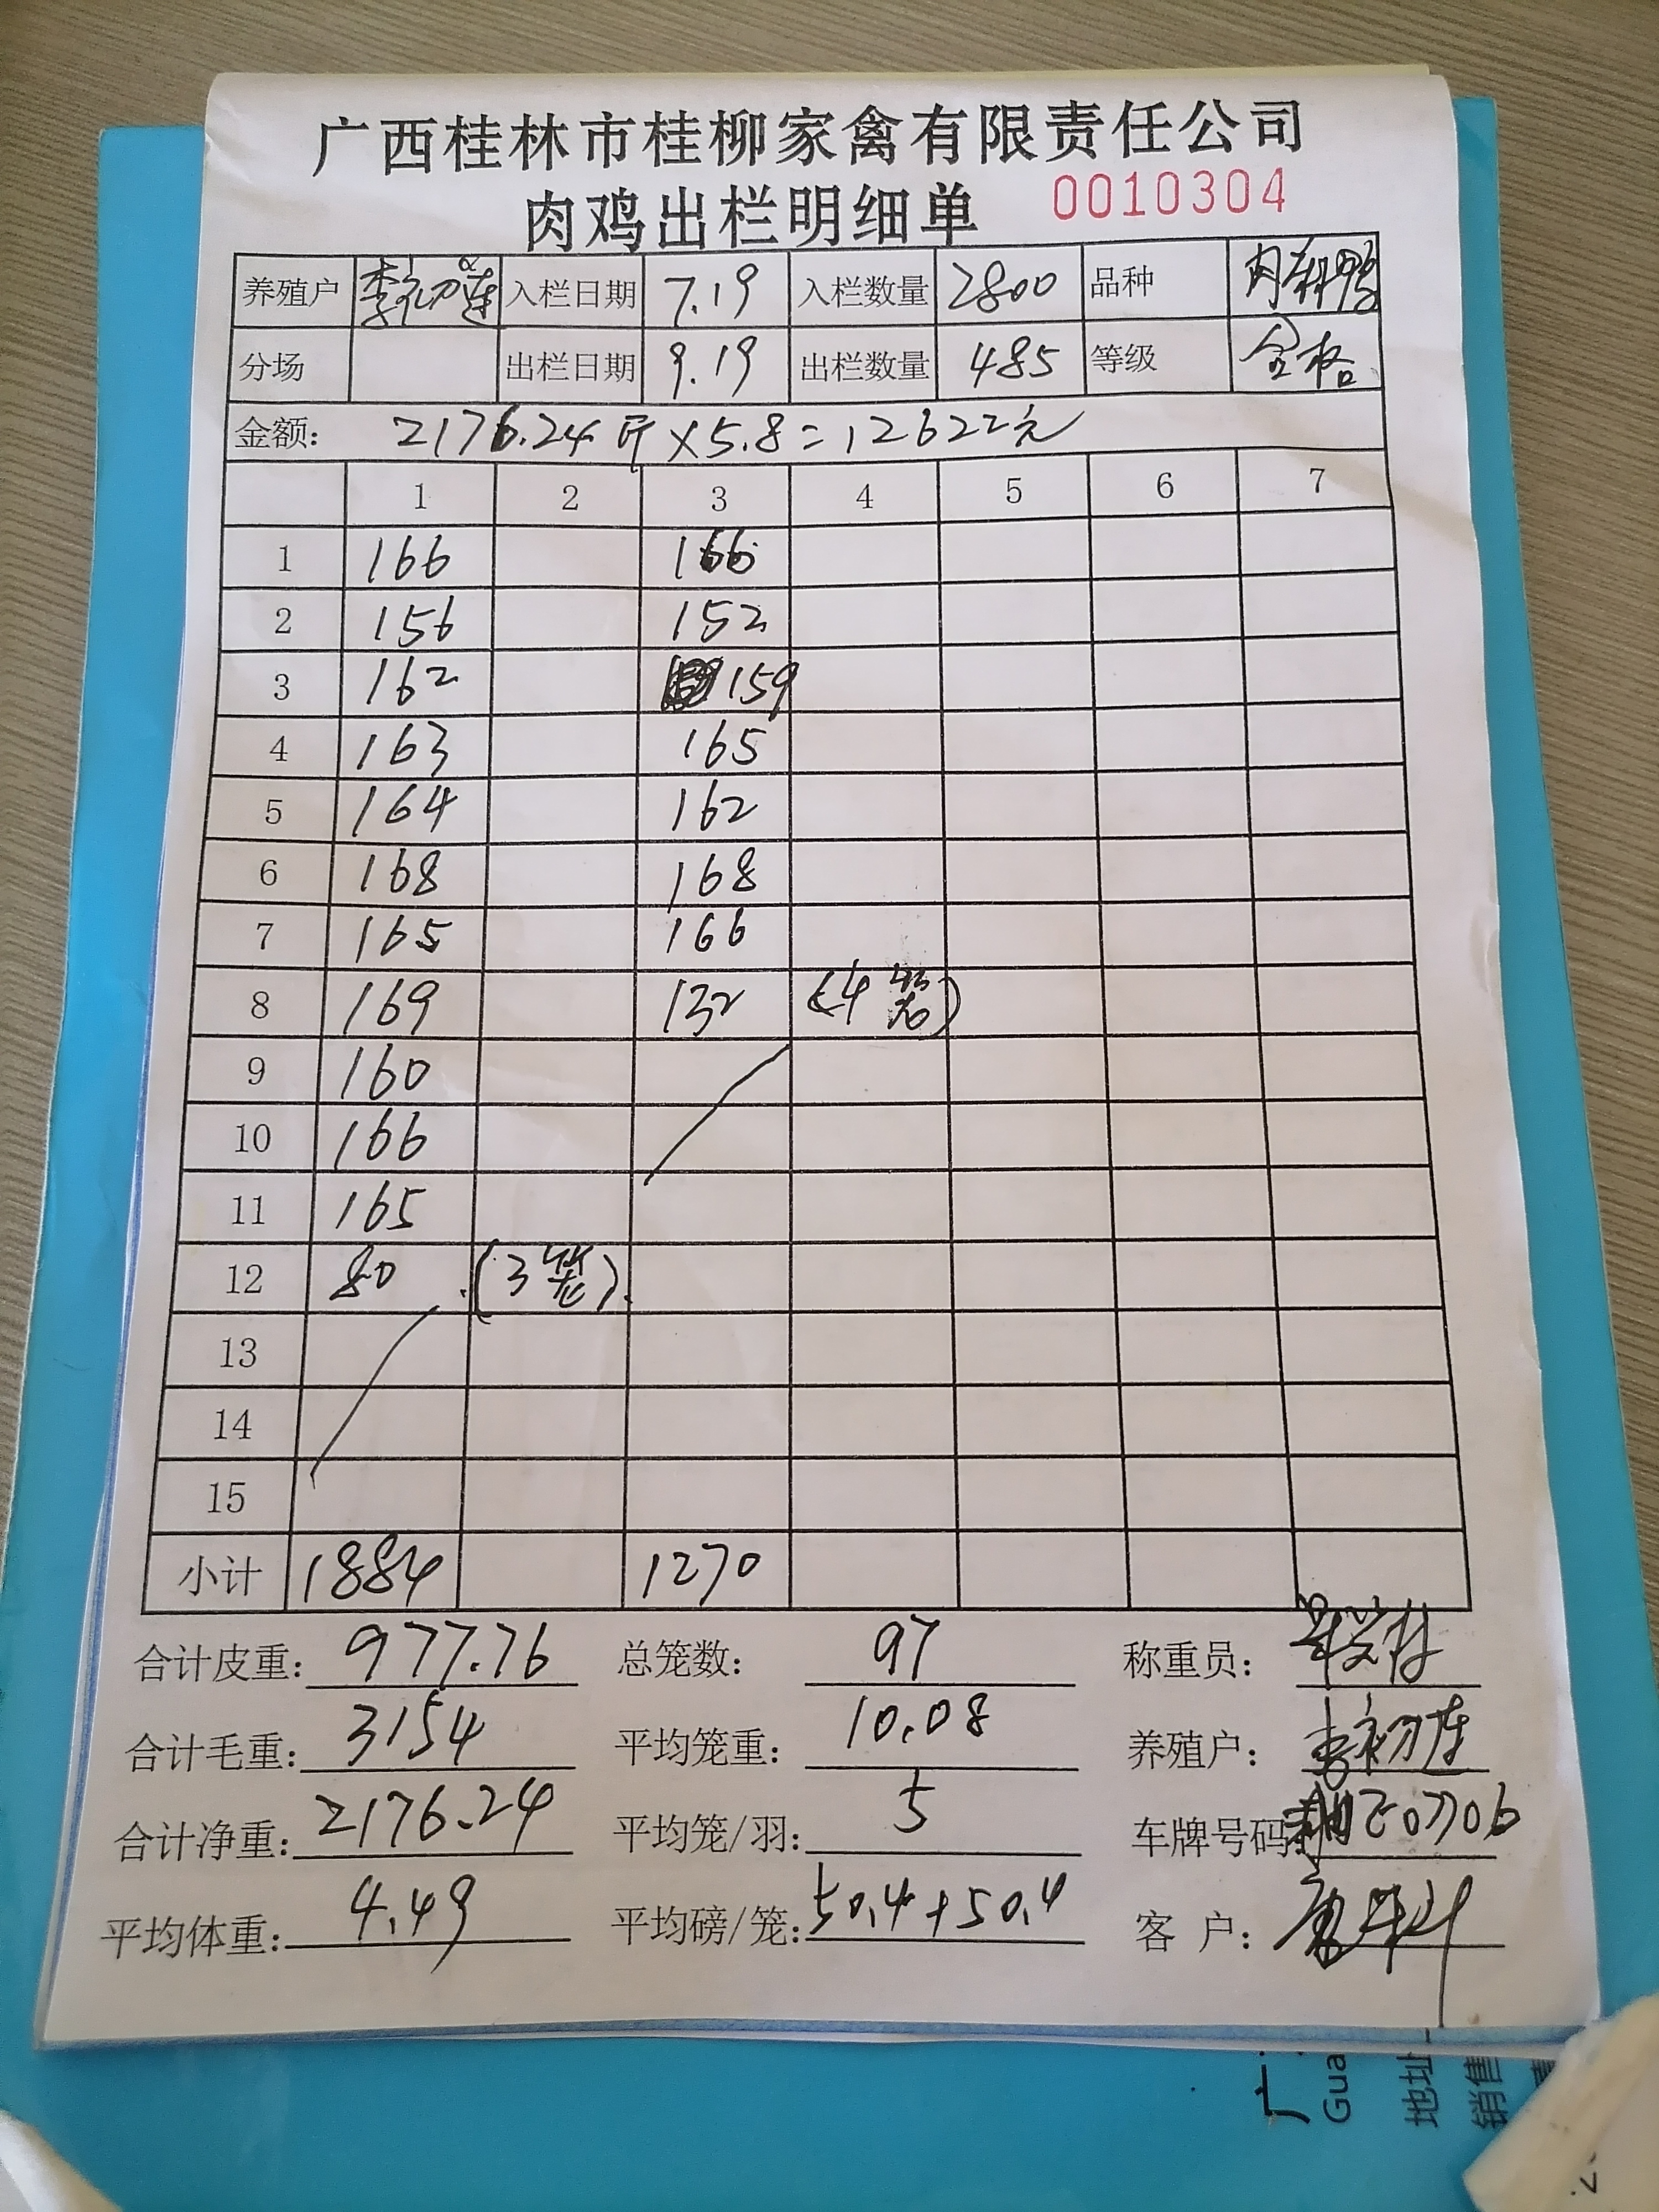 广西桂林市桂柳家禽有限责任公司
肉鸡出栏明细单 0010304
养殖户 李初莲 入栏日期 7.19 入栏数量 2800 品种 肉麻鸭
分场 出栏日期 9.19 出栏数量 485 等级 合格
金额: 2176.24斤×5.8=12622元
1 2 3 4 5 6 7
1 166 166
2 156 152
3 162 159
4 163 165
5 164 162
6 168 168
7 165 166
8 169 132 (4笼)
9 160
10 166
11 165
12 80 (3笼)
13
14
15
小计 1884 1270
合计皮重: 977.76 总笼数: 97 称重员:
合计毛重: 3154 平均笼重: 10.08 养殖户: 李初莲
合计净重: 2176.24 平均笼/羽: 5 车牌号码:
平均体重: 4.49 平均磅/笼: 50.4+50.4 客 户:
广
Gua
地址
销售